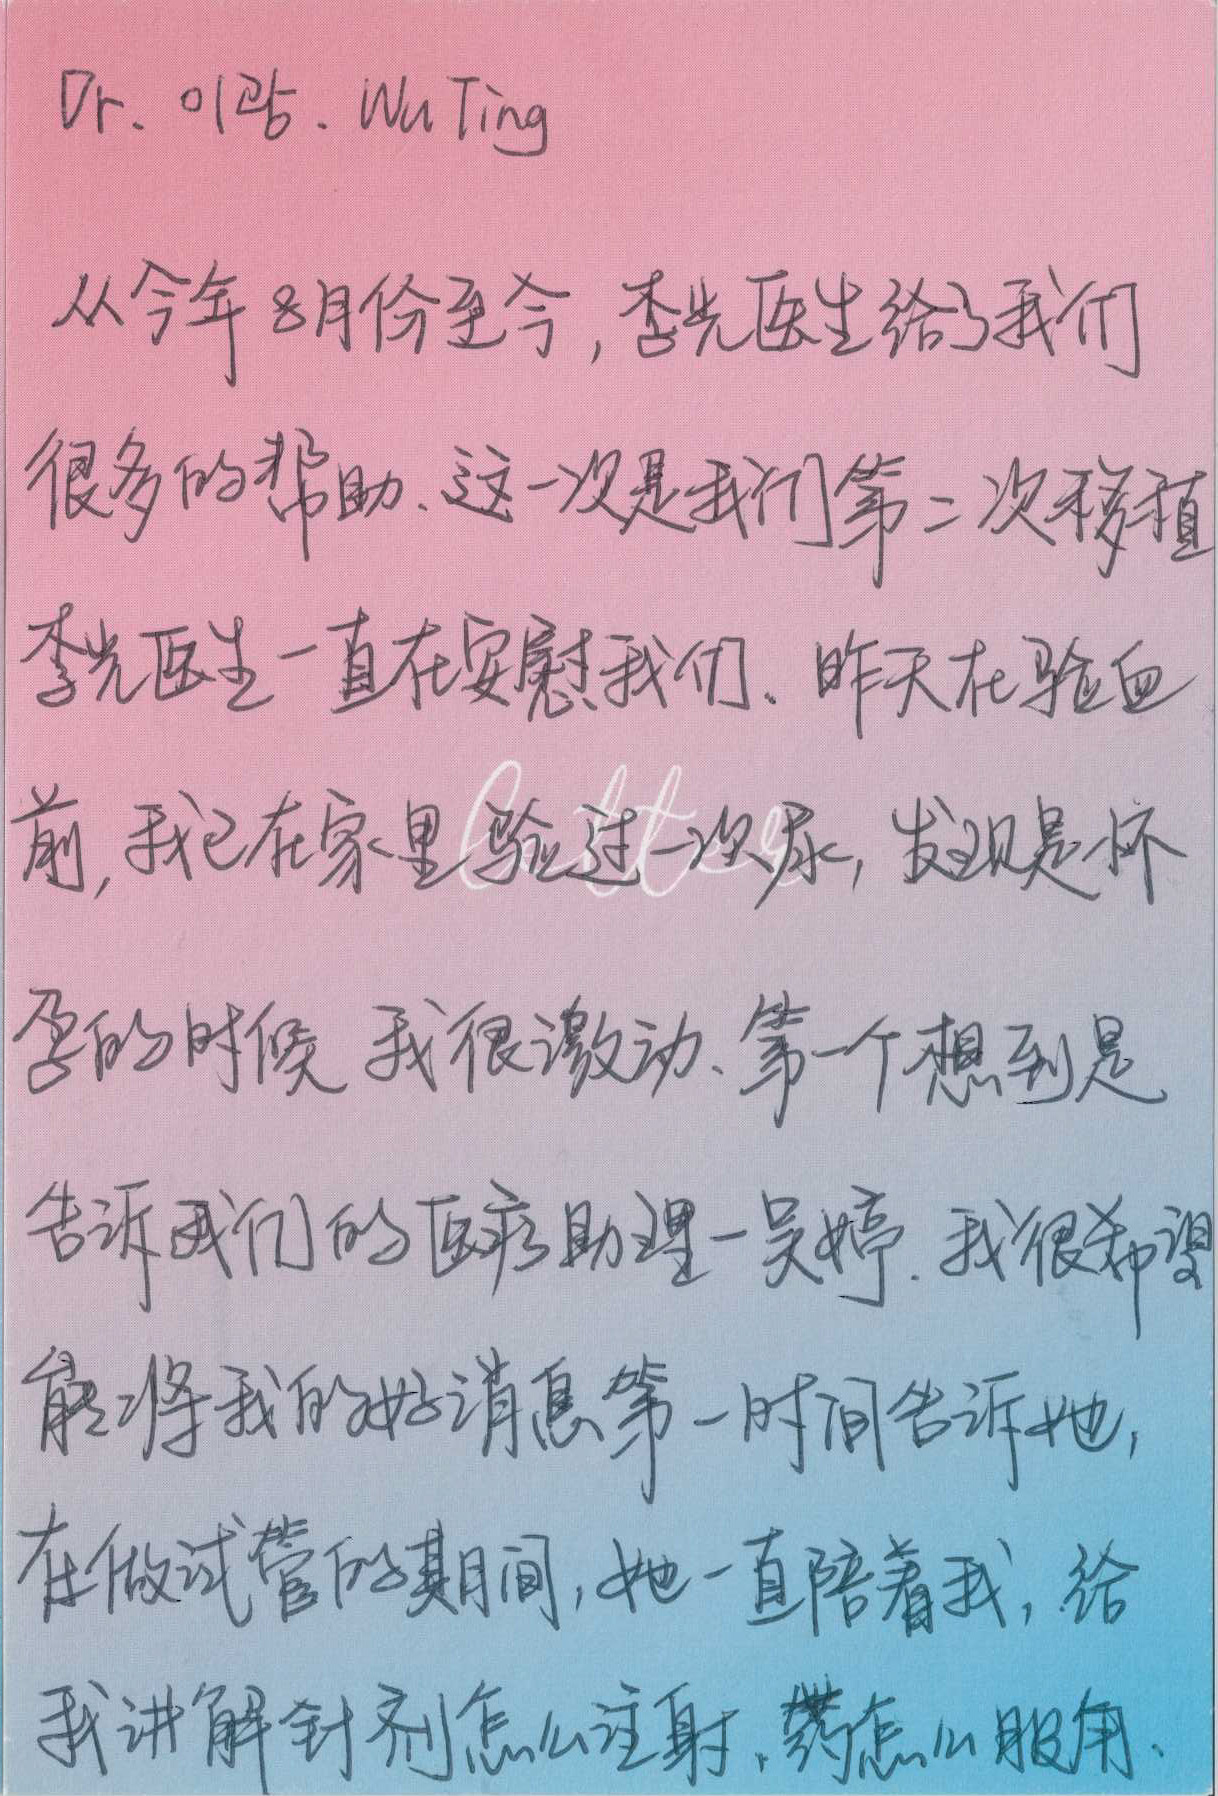 Dr. 이광. Wu Ting
从今年8月份至今，李光医生给了我们
很多的帮助、这一次是我们第二次移植
李光医生一直在安慰我们、昨天在验血
前，我已在家里验过一次尿，发现是怀
letter
孕的时候 我很激动、第一个想到是
告诉我们的医疗助理一吴婷.我很希望
能将我的好消息第一时间告诉她，
在做试管的期间，她一直陪着我，给
我讲解针剂怎么注射、药怎么服用、